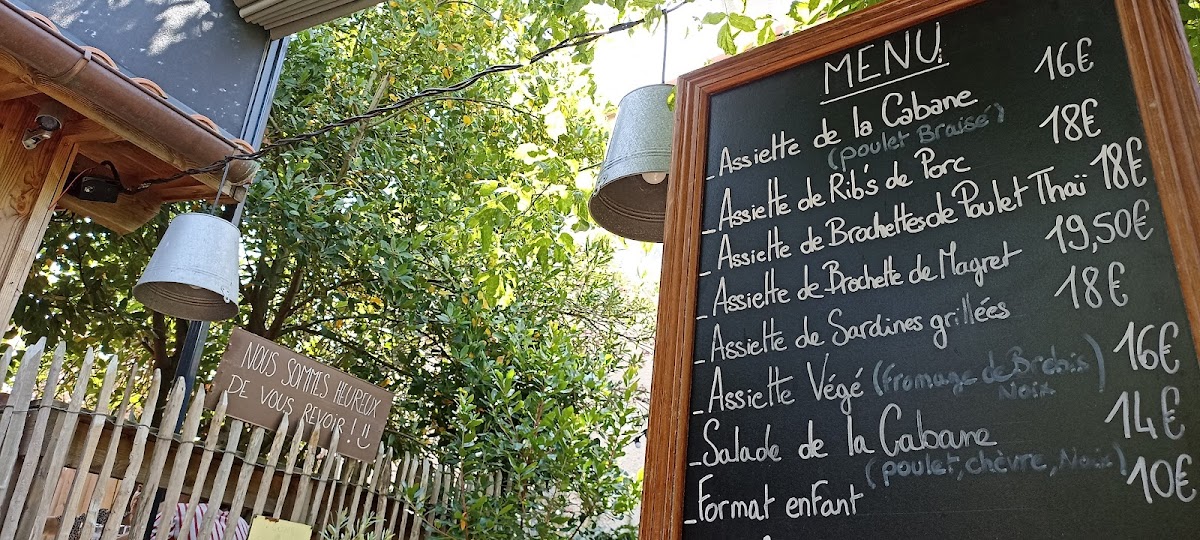 MENU
_Assiette de la Cabane 16€
(poulet Braisé)
_Assiette de Rib's de Porc 18€
_Assiette de Brochettes de Poulet Thaï 18€
_Assiette de Brochette de Magret 19,50€
_Assiette de Sardines grillées 18€
_Assiette Végé (fromage de Brebis 16€
Noix)
_Salade de la Cabane 14€
(poulet, chèvre, Noix)
_Format enfant 10€
NOUS SOMMES HEUREUX
DE VOUS REVOIR!